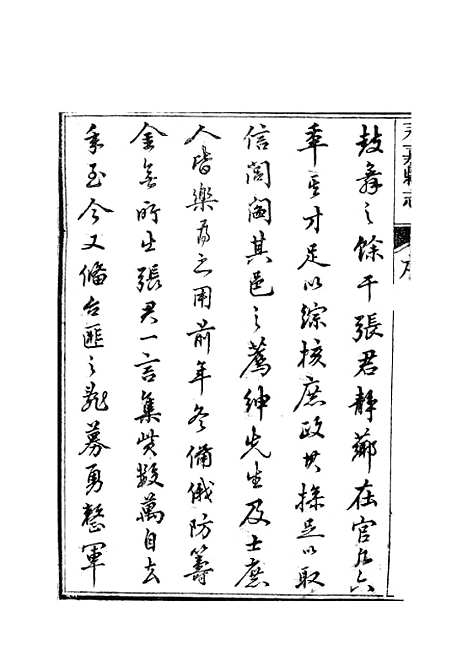 永嘉縣志
序
鼓舞之餘干張君靜薌在官凡六
年其才足以綜核庶政其操足以取
信閭閻其邑之薦紳先生及士庶
人皆樂為之用前年冬備俄防籌
金無所出張君一言集貲數萬自去
年至今又備台匪之亂募勇整軍